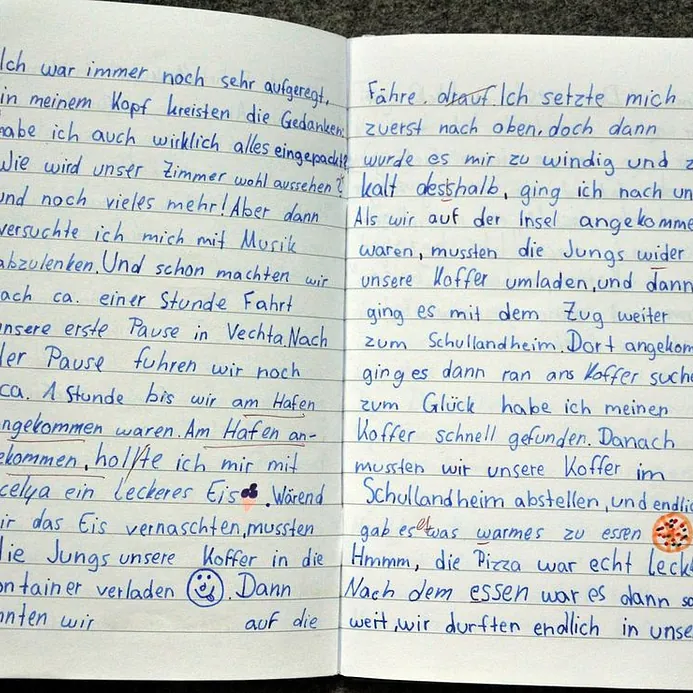 Ich war immer noch sehr aufgeregt,
in meinem Kopf kreisten die Gedanken:
habe ich auch wirklich alles eingepackt?
Wie wird unser Zimmer wohl aussehen?
und noch vieles mehr! Aber dann
versuchte ich mich mit Musik
abzulenken. Und schon machten wir
nach ca. einer Stunde Fahrt
unsere erste Pause in Vechta. Nach
der Pause fuhren wir noch
ca. 1 Stunde bis wir am Hafen
angekommen waren. Am Hafen an-
gekommen, hollte ich mir mit
ein leckeres Eis. Wärend
wir das Eis vernaschten, mussten
die Jungs unsere Koffer in die
Container verladen. Dann
nnten wir auf die
Fähre. drauf Ich setzte mich
zuerst nach oben, doch dann
wurde es mir zu windig und z
kalt desshalb, ging ich nach un
Als wir auf der Insel angekomme
waren, mussten die Jungs wider
unsere Koffer umladen, und dann
ging es mit dem Zug weiter
zum Schullandheim. Dort angekom
ging es dann ran ans Koffer suche
zum Glück habe ich meinen
Koffer schnell gefunden. Danach
mussten wir unsere Koffer im
Schullandheim abstellen, und endlic
gab es etwas warmes zu essen
Hmmm, die Pizza war echt leck
Nach dem essen war es dann so
weit, wir durften endlich in unse